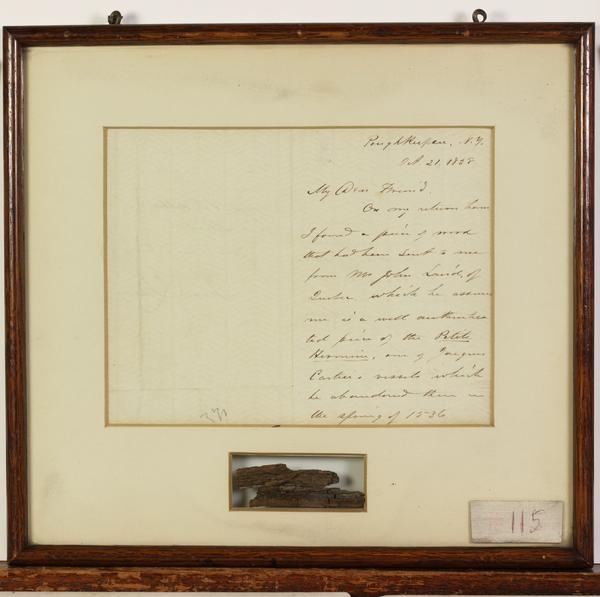 Poughkeepsie, N.Y.
Oct. 21, 1858
My Dear Friend,
On my return home
I found a piece of wood
that had been sent to me
from Mr John Laird, of
Quebec which he assures
me is a well authentica
ted piece of the Petite
Hermine, one of Jacques
Cartier's vessels which
he abandoned there in
the spring of 1536
115